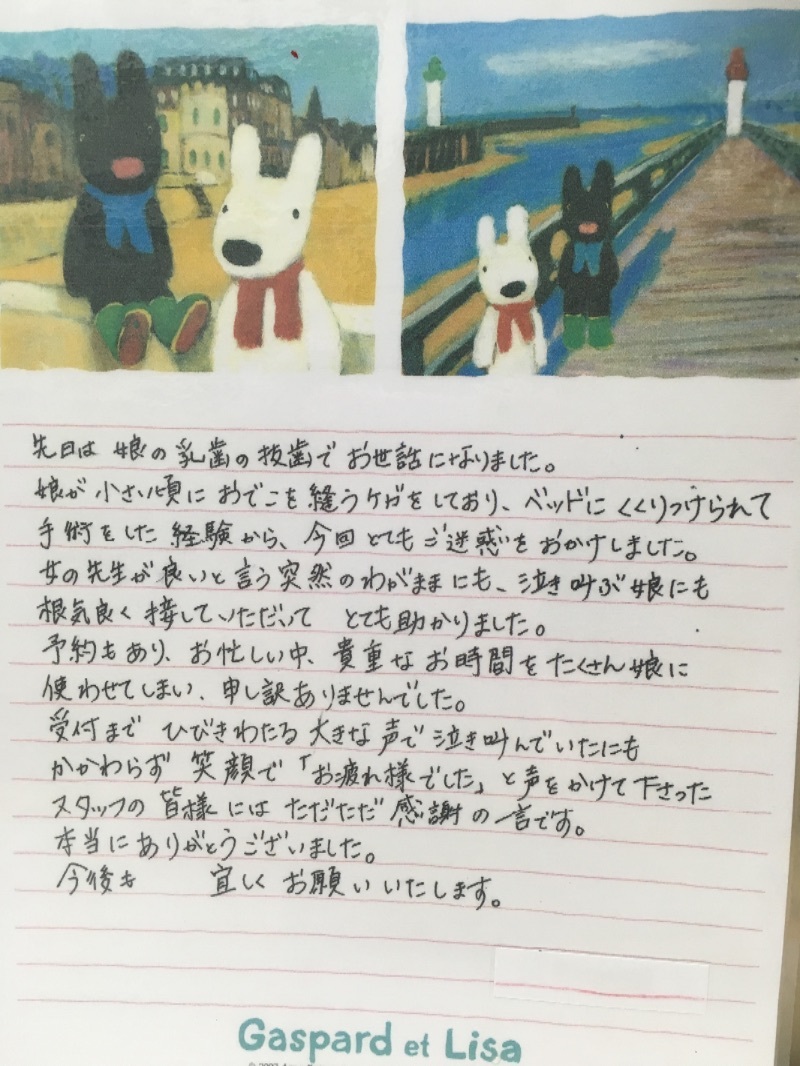 先日は 娘の乳歯の抜歯で お世話になりました。
娘が 小さい頃に おでこを縫うケガをしており、ベッドに くくりつけられて
手術をした 経験から、今回 とても ご迷惑を おかけしました。
女の先生が良いと言う突然のわがままにも、泣き叫ぶ娘にも
根気良く 接していただいて とても助かりました。
予約もあり、お忙しい中、貴重な お時間を たくさん娘に
使わせてしまい、申し訳ありませんでした。
受付まで ひびきわたる 大きな声で泣き叫んでいたにも
かかわらず 笑顔で「お疲れ様でした」と声をかけて下さった
スタッフの 皆様には ただただ 感謝の一言です。
本当にありがとうございました。
今後も 宜しく お願いいたします。
Gaspard et Lisa